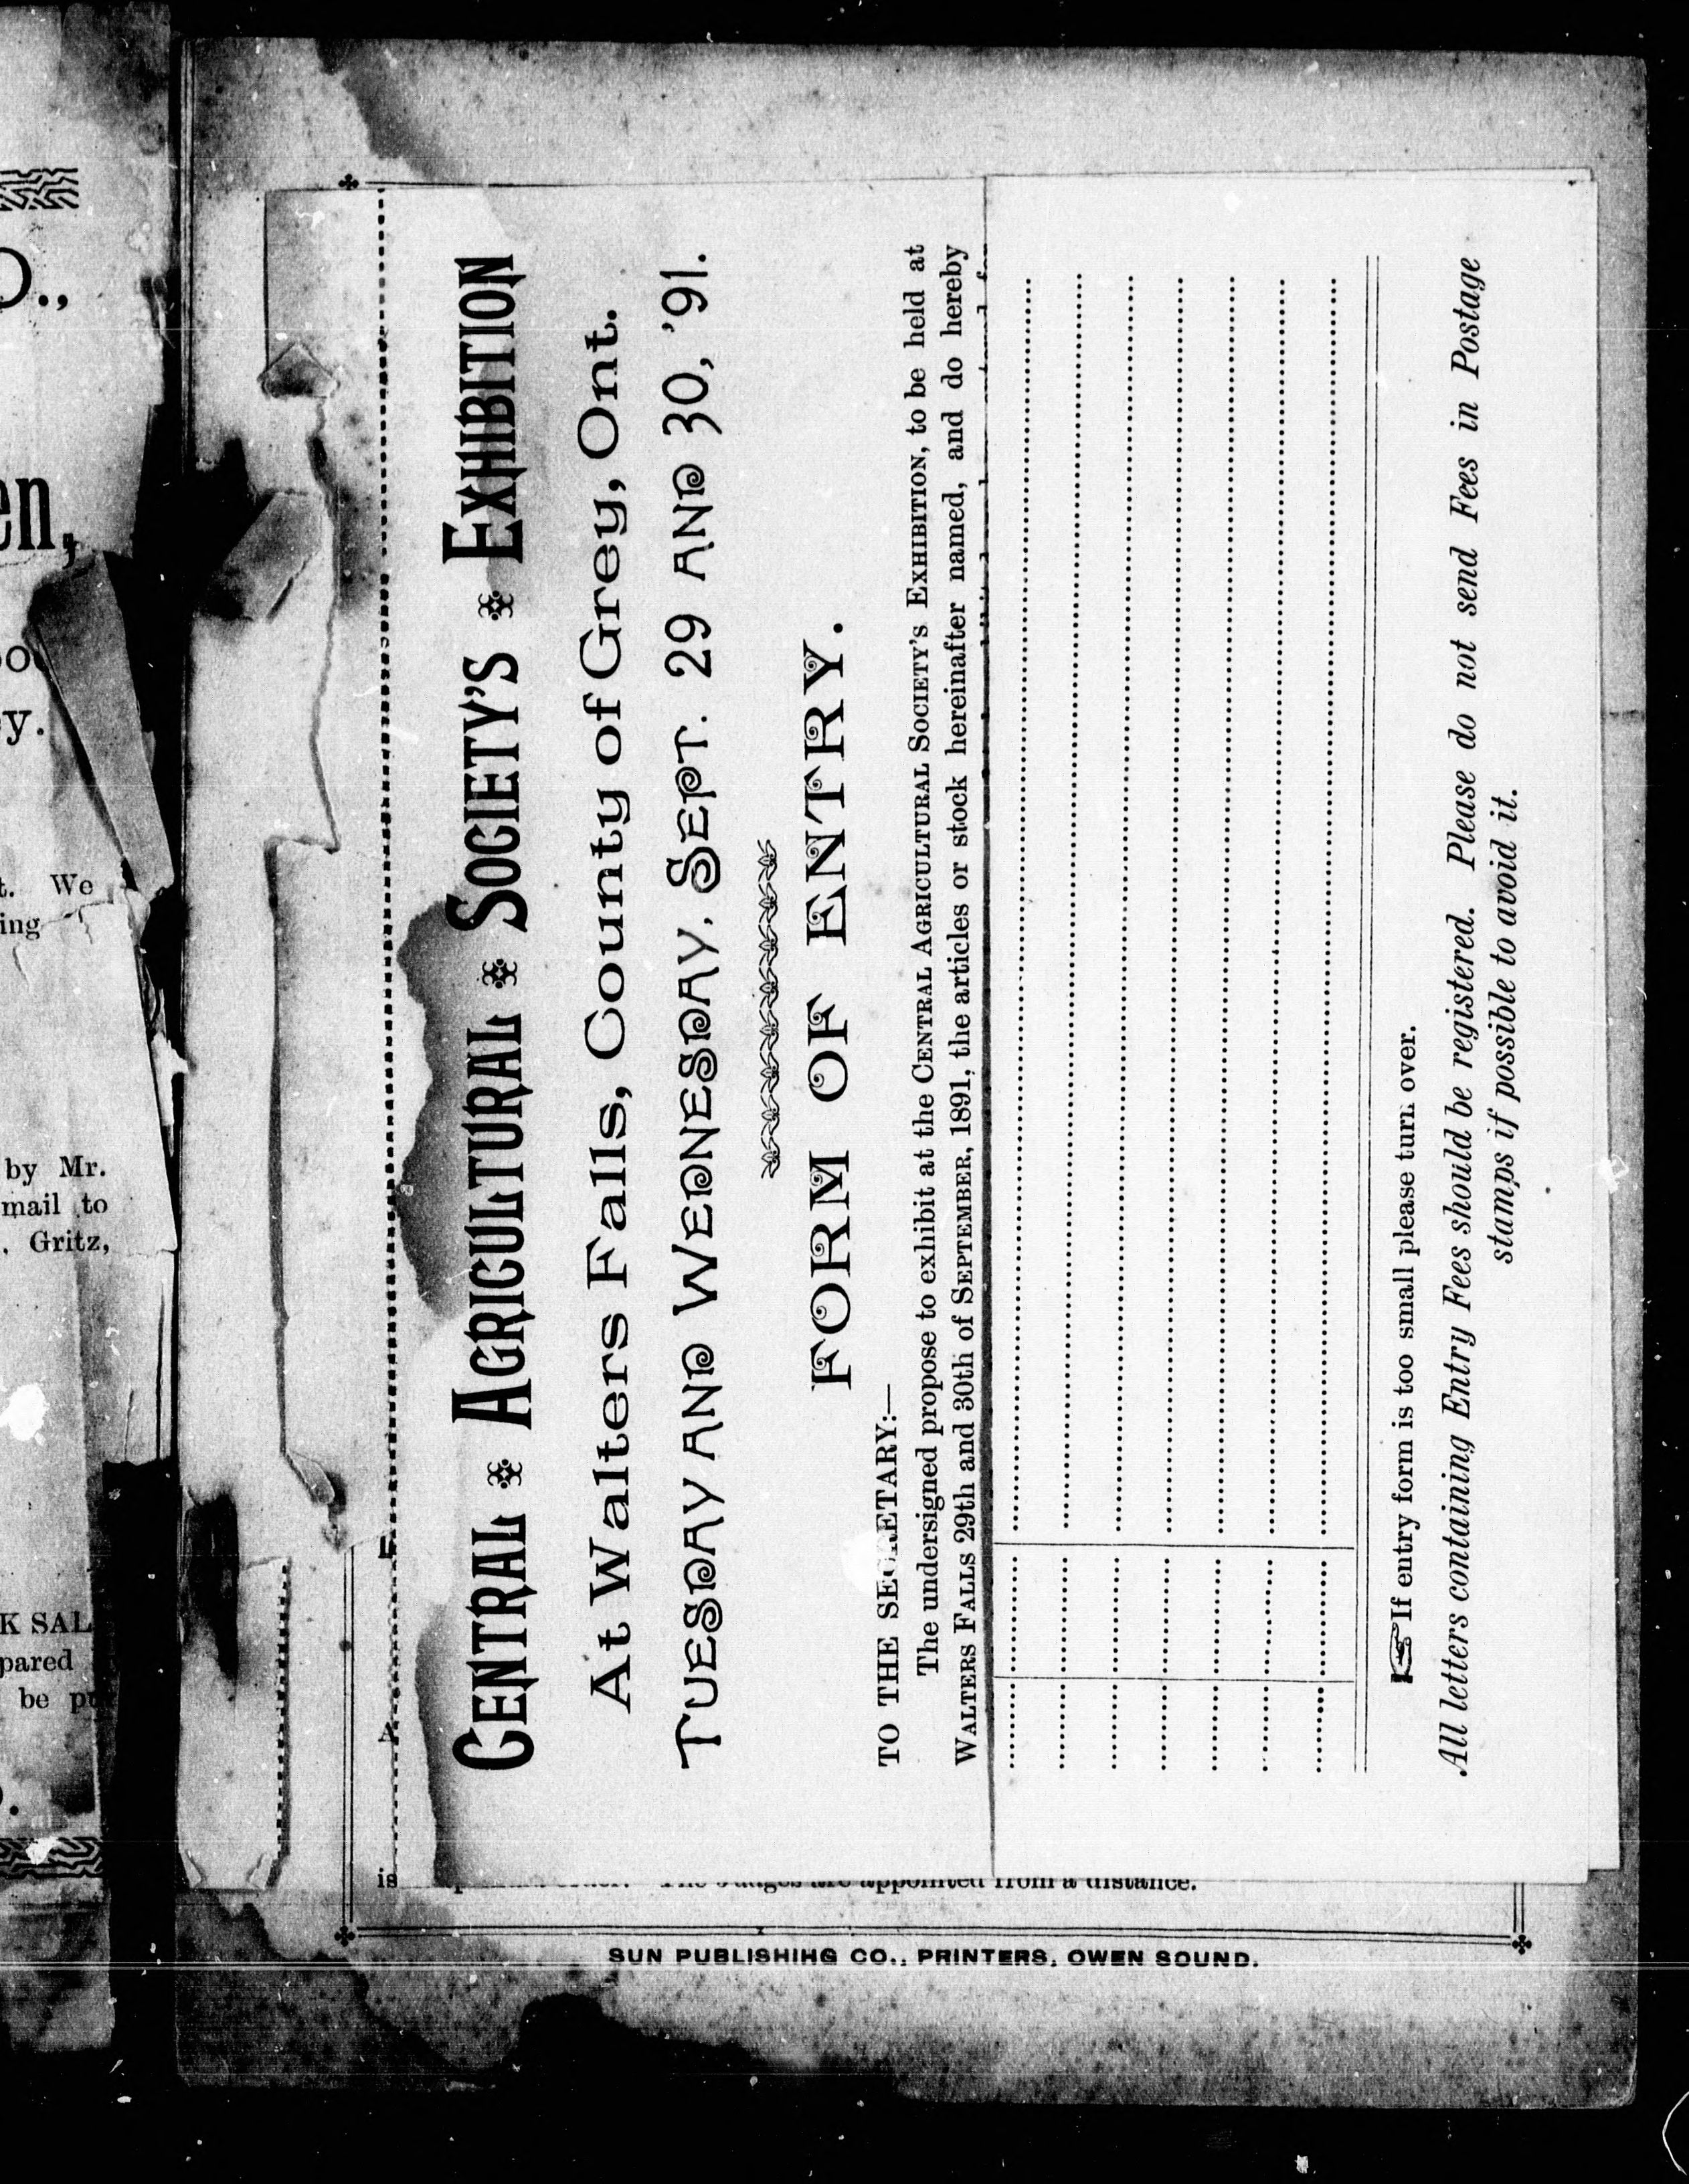 O.,
en,
y.
t. We
ing
by Mr.
mail to
. Gritz,
K SAL
pared
be
CENTRAL AGRICULTURAL SOCIETY'S EXHIBITION
At Walters Falls, County of Grey, Ont.
TUESDAY AND WEDNESDAY, SEPT. 29 AND 30, '91.
FORM OF ENTRY.
TO THE SECRETARY:—
The undersigned propose to exhibit at the CENTRAL AGRICULTURAL SOCIETY'S EXHIBITION, to be held at
WALTERS FALLS 29th and 30th of SEPTEMBER, 1891, the articles or stock hereinafter named, and do hereby
☞ If entry form is too small please turn over.
All letters containing Entry Fees should be registered. Please do not send Fees in Postage
stamps if possible to avoid it.
is The Judges are appointed from a distance.
SUN PUBLISHIHG CO., PRINTERS, OWEN SOUND.